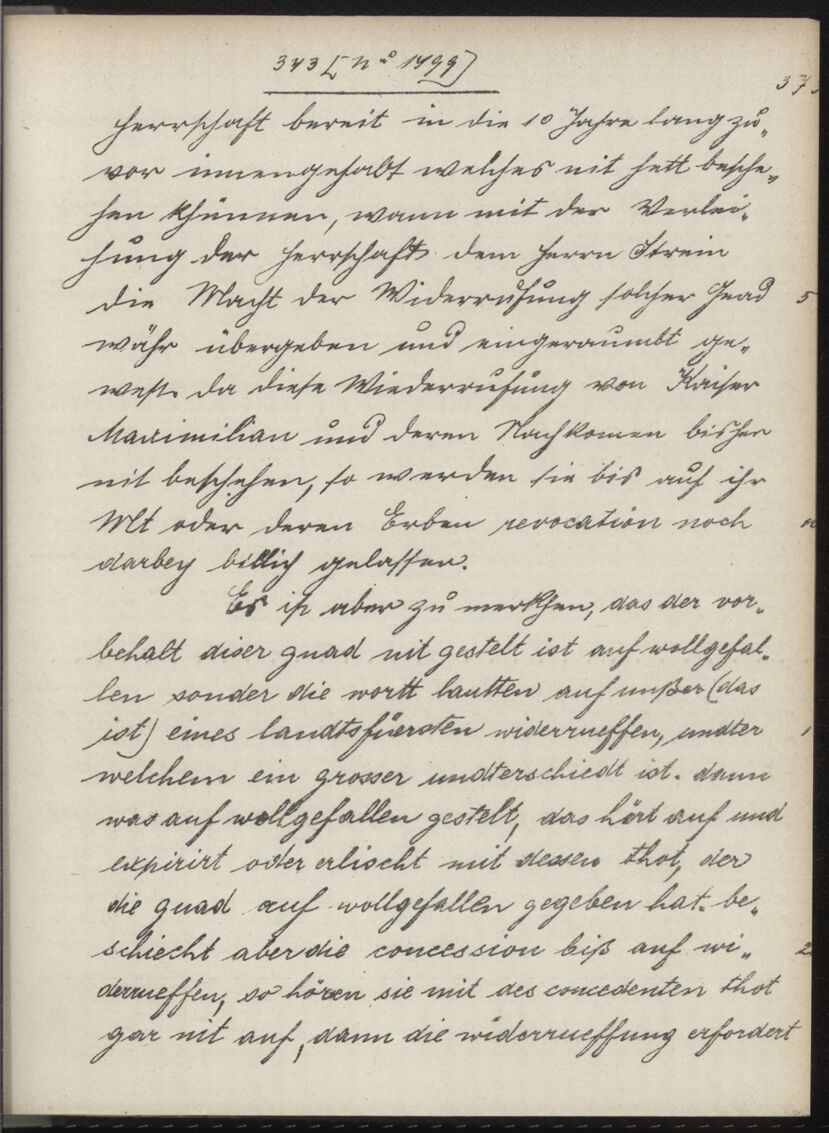 343 [Nº 1499]
373
herrschaft bereit in die 10 Jahre lang zu„
vor innengehabt welches nit hett besche„
hen khünnen, wann mit der Verlei„
hung der herrschaft dem herrn Strein
die Macht der Widerrufung solcher Gnad 5
währ übergeben und eingeraumbt ge„
west. da diese Wiederrufung von Kaiser
Maximilian und deren Nachkomen bisher
nit beschehen, so werden sie bis auf ihr
Mt oder deren Erben revocation noch
darbey billich gelassen.
Es ist aber zu merkhen, das der vor„
behalt diser gnad nit gestelt ist auf wollgefal„
len sonder die wortt lautten auf unßer (das
ist) eines landtsfüersten widerrueffen, undter 1
welchem ein grosser undterschiedt ist. dann
was auf wollgefallen gestelt, das hört auf und
expirirt oder erlischt mit dessen thot, der
die gnad auf wollgefallen gegeben hat. be„
schiecht aber die concession biß auf wi„ 2
derrueffen, so hören sie mit des concedenten thot
gar nit auf, dann die widerrueffung erfordert